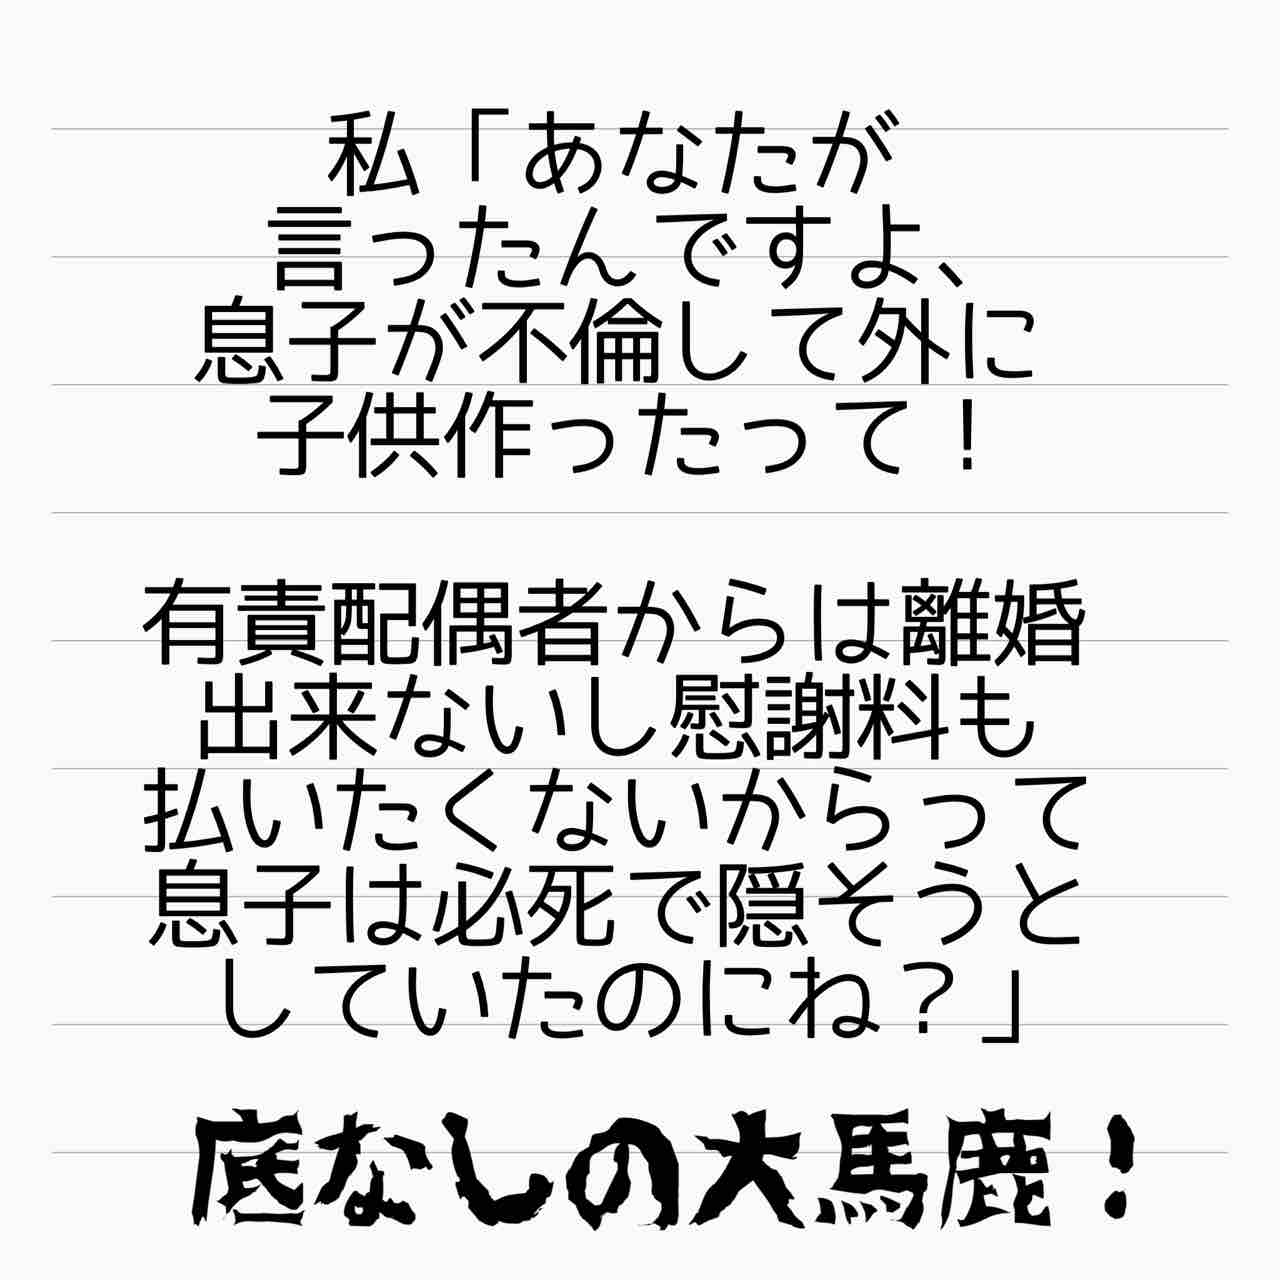 私「あなたが
言ったんですよ、
息子が不倫して外に
子供作ったって！
有責配偶者からは離婚
出来ないし慰謝料も
払いたくないからって
息子は必死で隠そうと
していたのにね？」
底なしの大馬鹿！